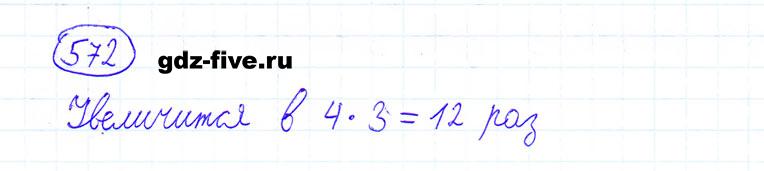 572
gdz-five.ru
Увеличится в 4 · 3 = 12 раз